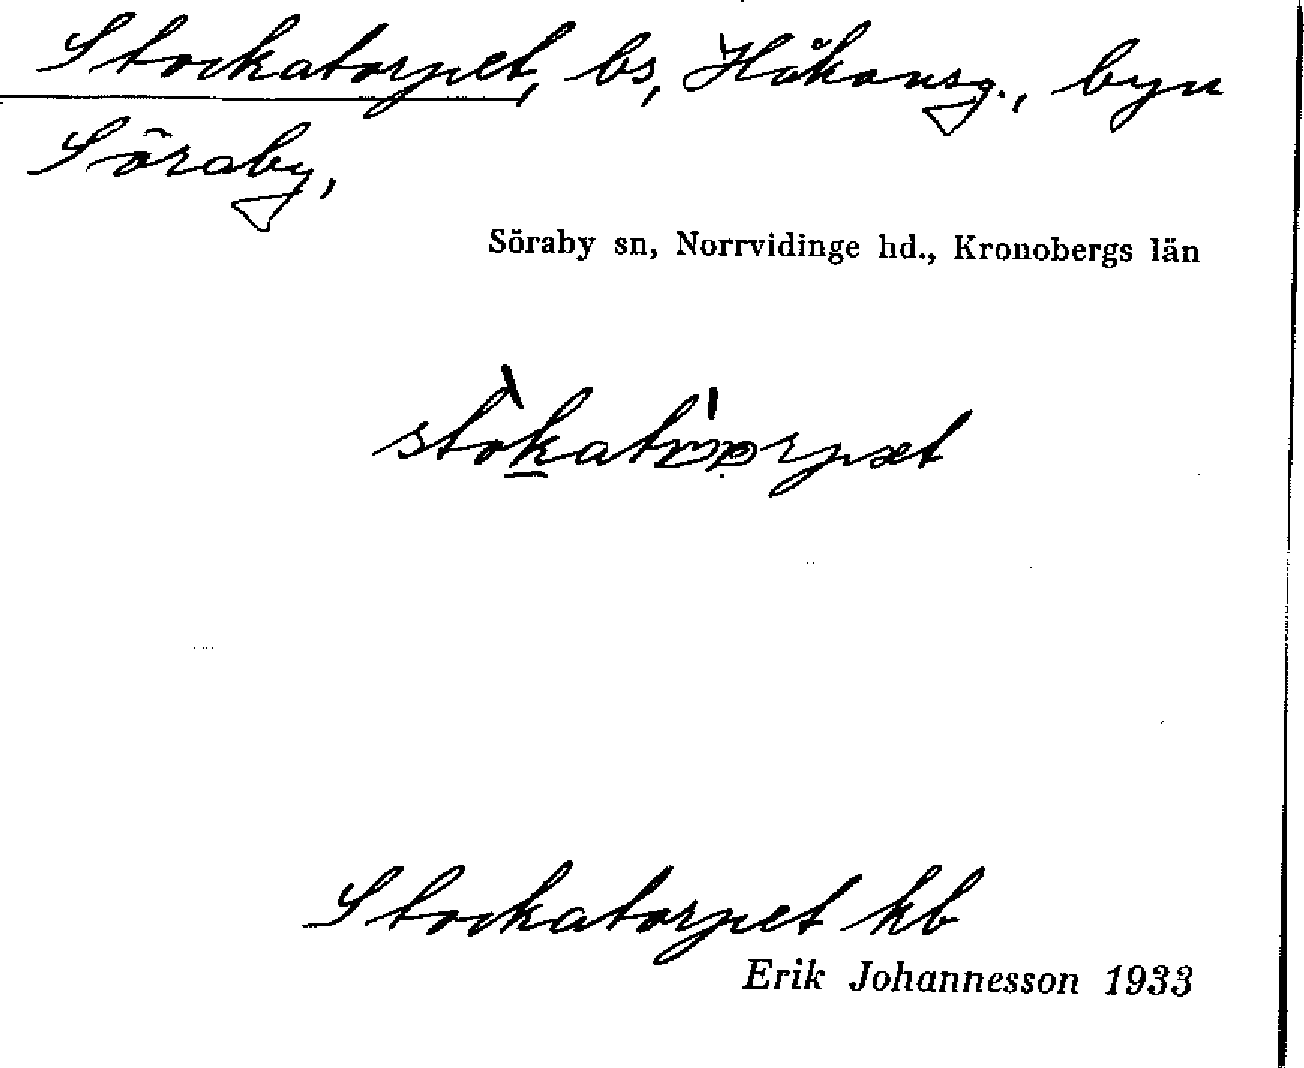 Stockatorpet, bs, Håkansg., byn
Söraby,
Söraby sn, Norrvidinge hd., Kronobergs län
Stockatorpet kb
Erik Johannesson 1933